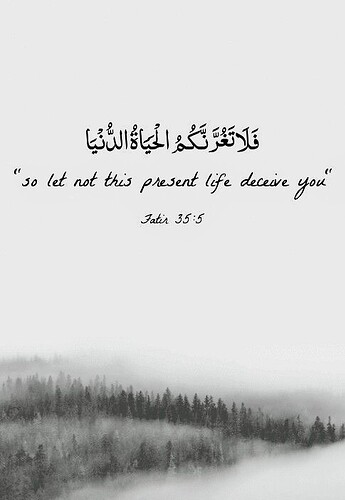 فَلَا تَغُرَّنَّكُمُ الْحَيَاةُ الدُّنْيَا
"so let not this present life deceive you"
Fatir 35:5